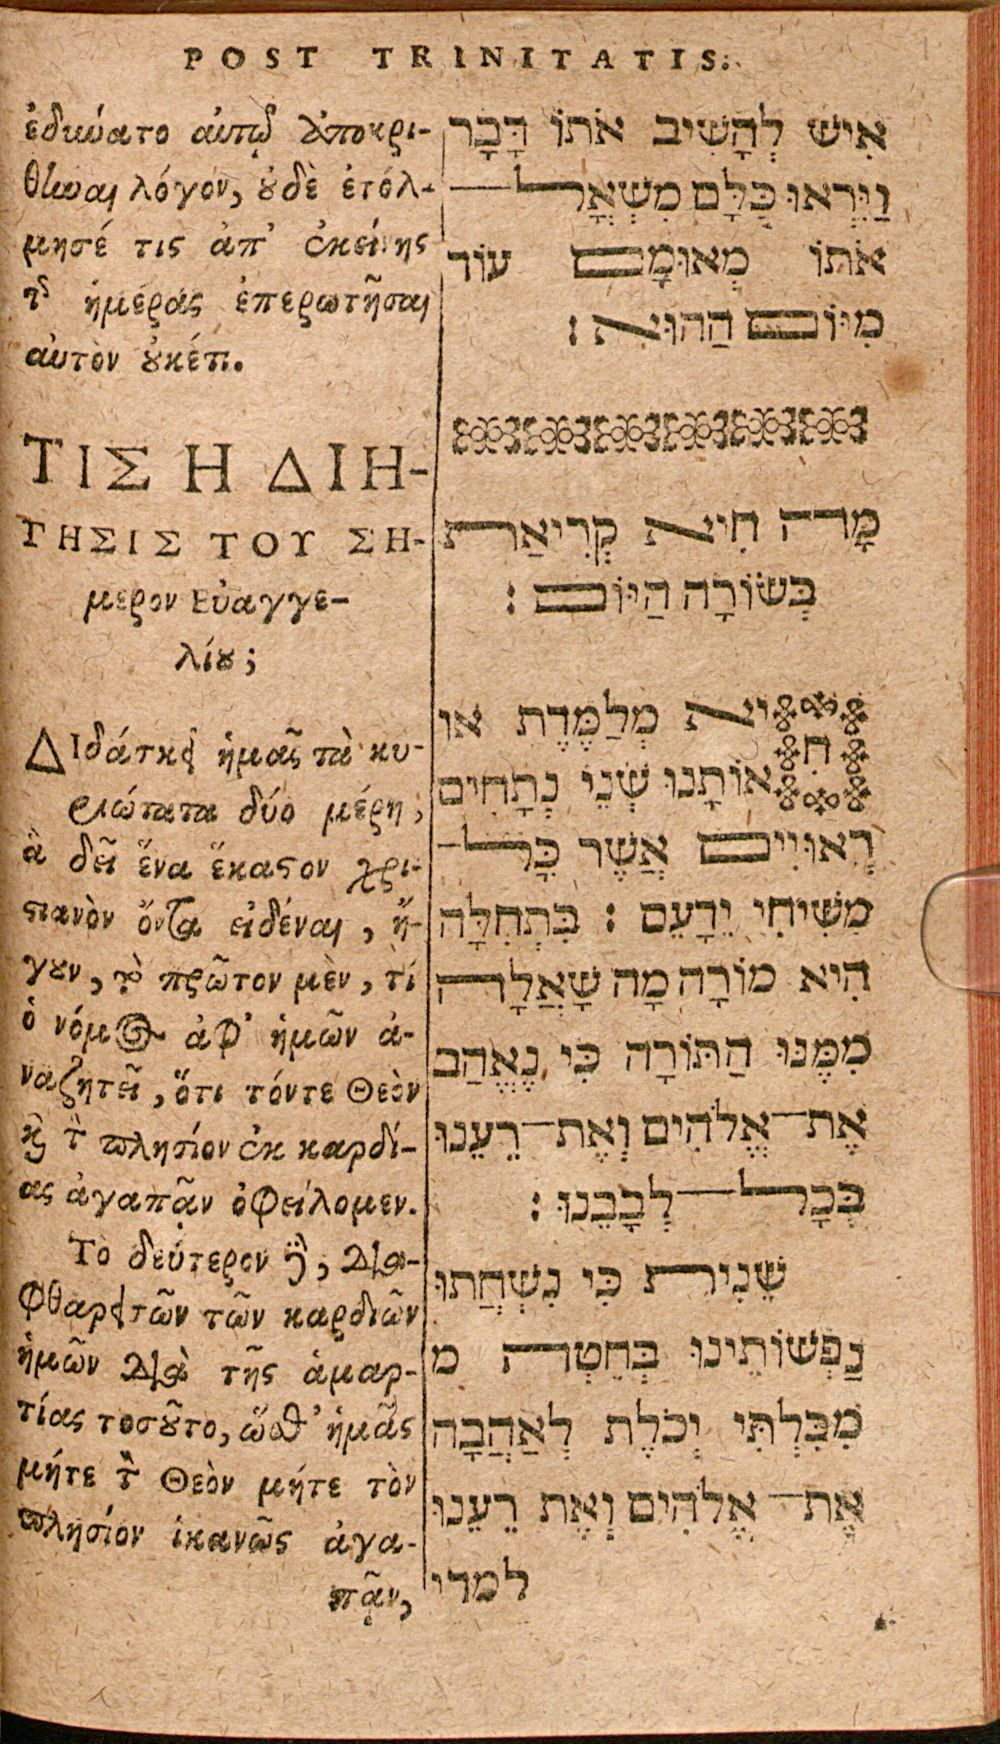 POST TRINITATIS.
ἐδύνατο αὐτῷ ἀποκρι-
θῆναι λόγον, οὐδὲ ἐτόλ-
μησέ τις ἀπ' ἐκείνης
τῆς ἡμέρας ἐπερωτῆσαι
αὐτὸν οὐκέτι.
ΤΙΣ Η ΔΙΗ-
ΓΗΣΙΣ ΤΟΥ ΣΗ-
μερον Εὐαγγε-
λίου;
ΔΙδάσκει ἡμᾶς τὰ κυ-
ριώτατα δύο μέρη,
ἃ δεῖ ἕνα ἕκαστον χρι-
στιανὸν ὄντα εἰδέναι, ἤ-
γουν, τὸ πρῶτον μὲν, τί
ὁ νόμος ἀφ' ἡμῶν ἀ-
ναζητεῖ, ὅτι τόντε Θεὸν
καὶ τὸν πλησίον ἐκ καρδί-
ας ἀγαπᾷν ὀφείλομεν.
Τὸ δεύτερον δὲ, δια-
φθαρεισῶν τῶν καρδιῶν
ἡμῶν διὰ τῆς ἁμαρ-
τίας τοσοῦτο, ὥσθ' ἡμᾶς
μήτε τὸν Θεὸν μήτε τὸν
πλησίον ἱκανῶς ἀγα-
πᾷν,
אִישׁ לְהָשִׁיב אֹתוֹ דָּבָר
וַיִּרְאוּ כֻּלָּם מִשְׁאָל
אֹתוֹ מְאוּמָם עוֹד
מִיּוֹם הַהוּא :
מָה הִיא קְרִיאַת
בְּשׂוֹרָה הַיּוֹם :
הִיא מְלַמֶּדֶת או
אוֹתָנוּ שְׁנֵי נְתָחִים
רְאוּיִים אֲשֶׁר כָּל
מְשִׁיחִי יֵרָעֵם : בִּתְחִלָּה
הִיא מוֹרָה מָה שָׁאֲלָה
מִמֶּנּוּ הַתּוֹרָה כִּי נֶאֱהַב
אֶת־אֱלֹהִים וְאֶת־רֵעֵנוּ
בְּכָל לְבָבֵנוּ :
שֵׁנִית כִּי נִשְׁחֲתוּ
נַפְשׁוֹתֵינוּ בְּחֵטְא מ
מִבִּלְתִּי יְכֹלֶת לְאַהֲבָה
אֶת־אֱלֹהִים וְאֶת רֵעֵנוּ
למדי